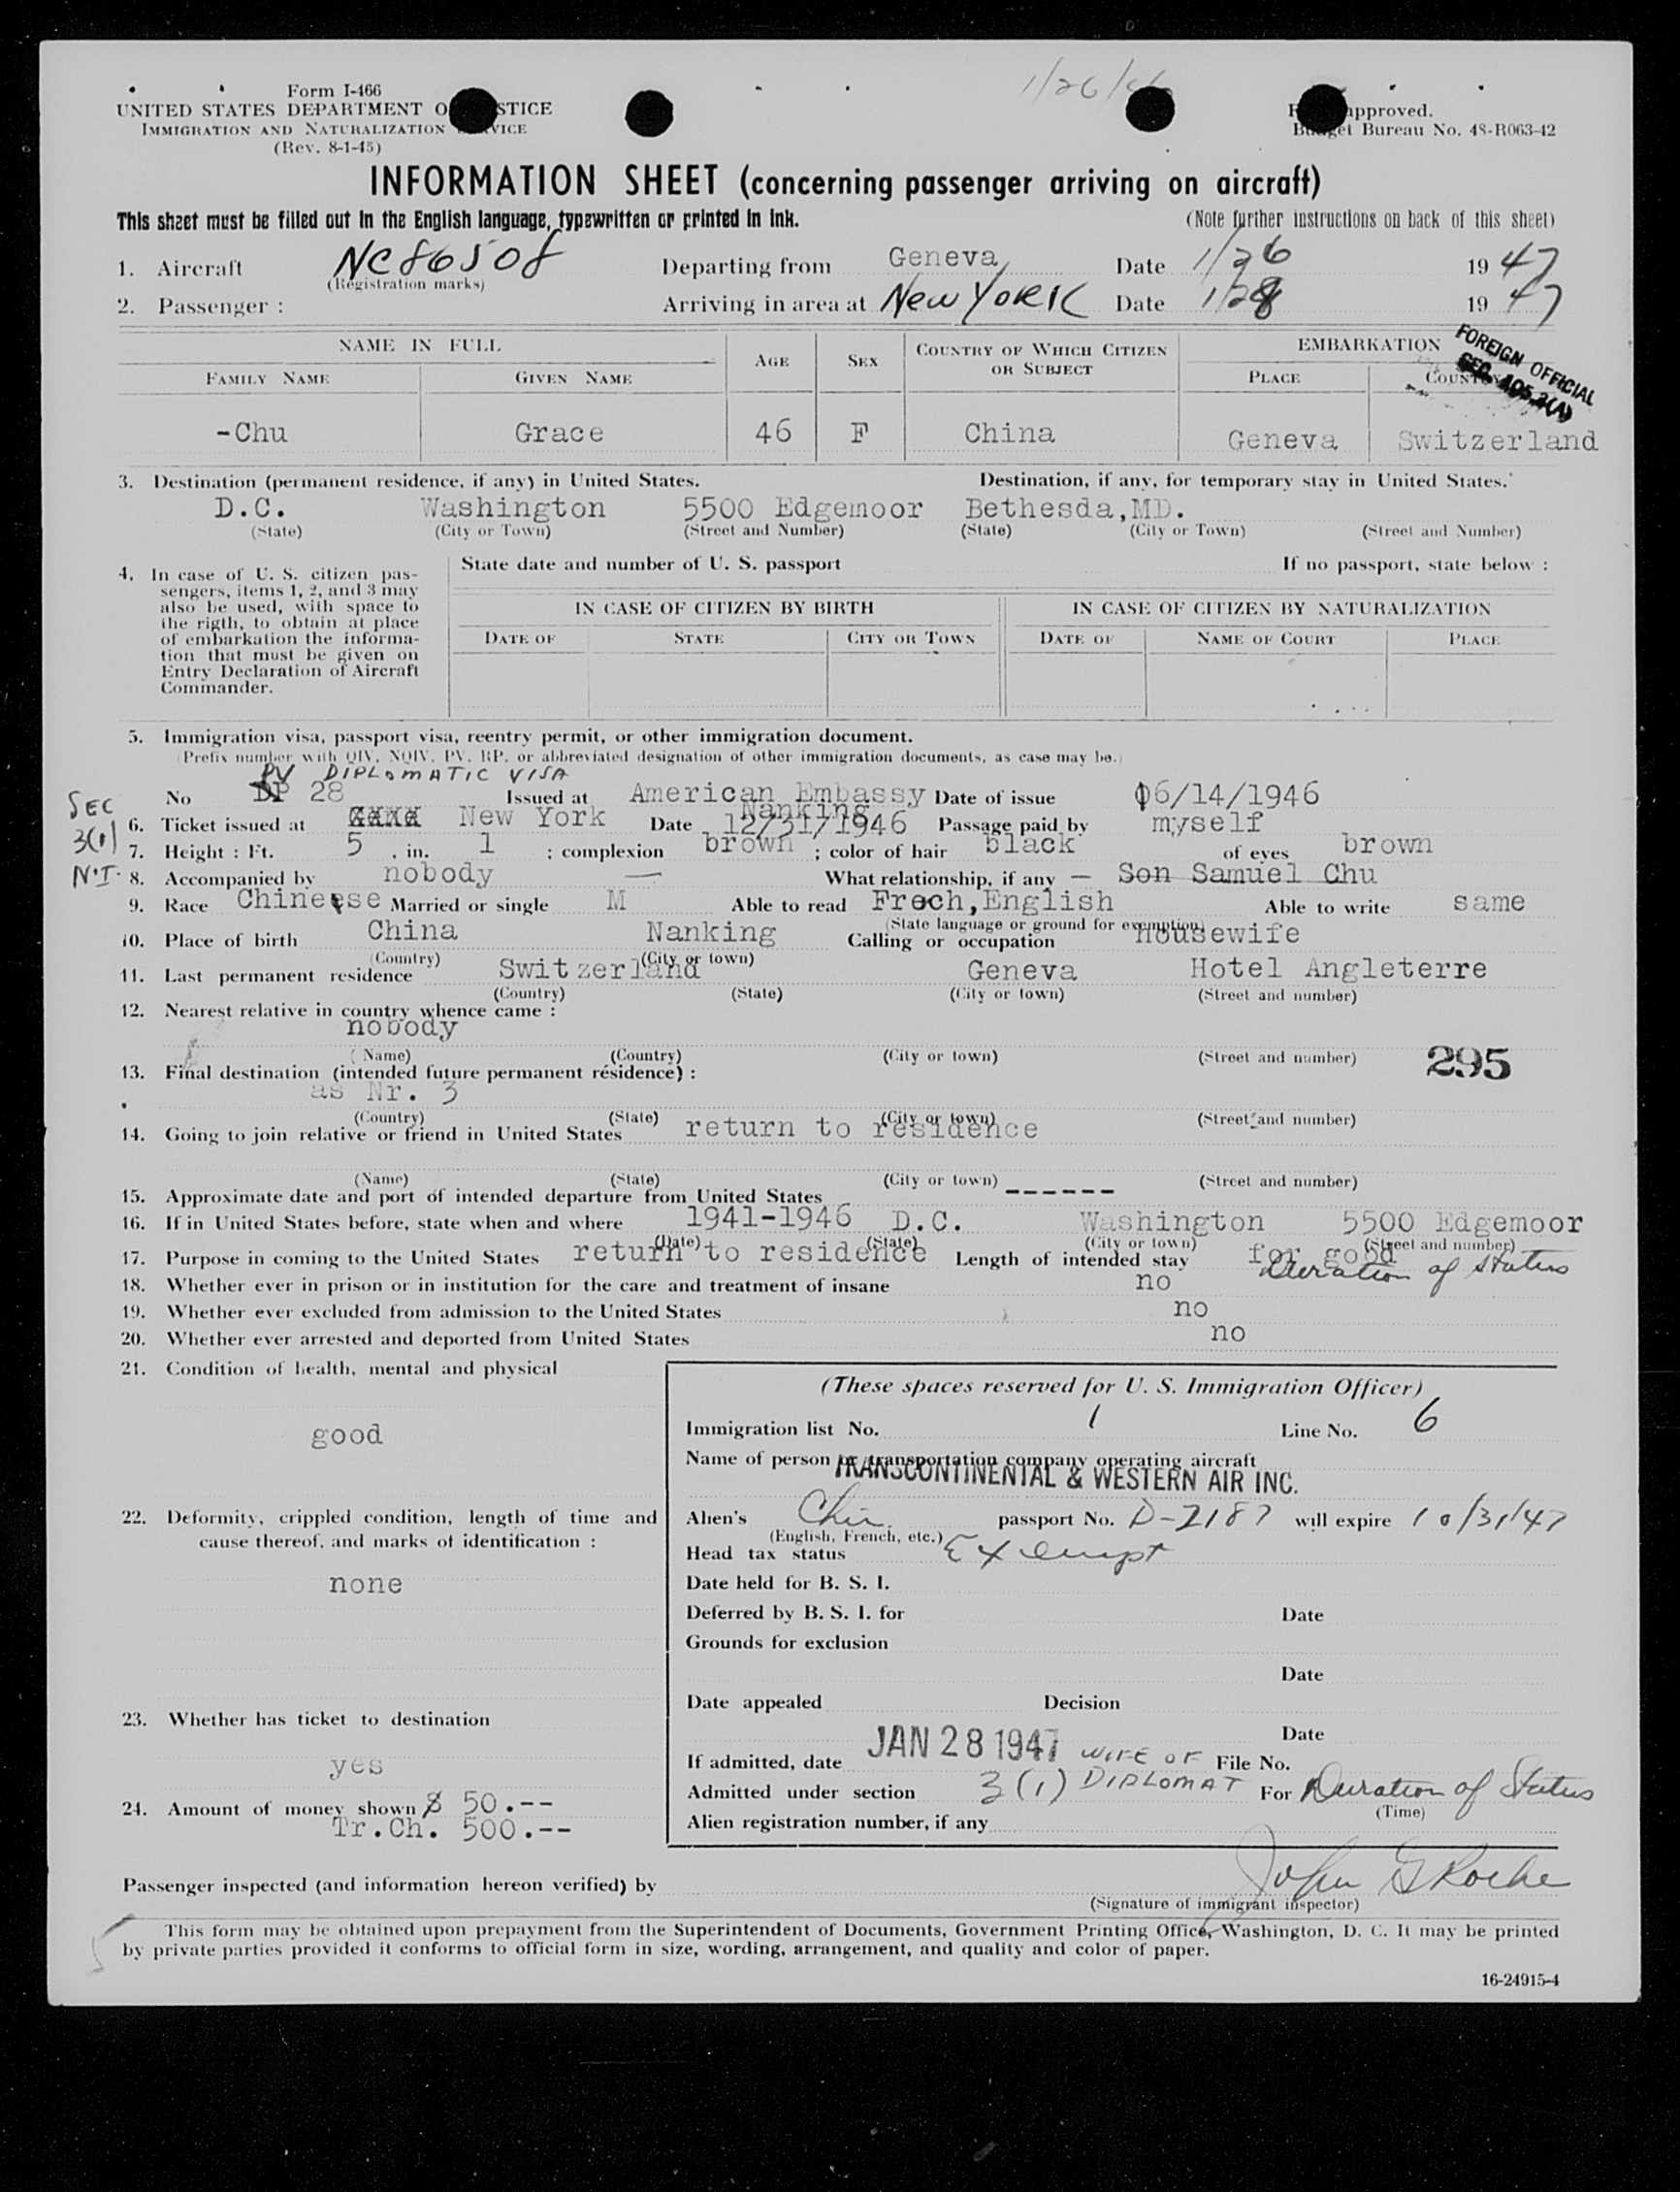 1/26/46
Form I-466
UNITED STATES DEPARTMENT O STICE
IMMIGRATION AND NATURALIZATION VICE
(Rev. 8-1-45)
approved.
Budget Bureau No. 48-R063-42
INFORMATION SHEET (concerning passenger arriving on aircraft)
This sheet must be filled out in the English language, typewritten or printed in ink.
(Note further instructions on back of this sheet)
1. Aircraft NC86508 Departing from Geneva Date 1/26 19 47
(Registration marks)
2. Passenger : Arriving in area at New York Date 1/28 19 47
FOREIGN OFFICIAL
NAME IN FULL AGE SEX COUNTRY OF WHICH CITIZEN OR SUBJECT EMBARKATION
FAMILY NAME GIVEN NAME PLACE COUNTRY
SEC. 105.3(A)
-Chu Grace 46 F China Geneva Switzerland
3. Destination (permanent residence, if any) in United States. Destination, if any, for temporary stay in United States.
D.C. Washington 5500 Edgemoor Bethesda,MD.
(State) (City or Town) (Street and Number) (State) (City or Town) (Street and Number)
4. In case of U. S. citizen pas-
sengers, items 1, 2, and 3 may
also be used, with space to
the rigth, to obtain at place
of embarkation the informa-
tion that must be given on
Entry Declaration of Aircraft
Commander.
State date and number of U. S. passport If no passport, state below :
IN CASE OF CITIZEN BY BIRTH IN CASE OF CITIZEN BY NATURALIZATION
DATE OF STATE CITY OR TOWN DATE OF NAME OF COURT PLACE
5. Immigration visa, passport visa, reentry permit, or other immigration document.
(Prefix number with QIV, NQIV, PV, RP, or abbreviated designation of other immigration documents, as case may be.)
PV DIPLOMATIC VISA
No DP 28 Issued at American Embassy Date of issue 06/14/1946
Nanking
SEC
3(1)
N.I.
6. Ticket issued at New York Date 12/31/1946 Passage paid by myself
7. Height : Ft. 5 , in. 1 ; complexion brown ; color of hair black of eyes brown
8. Accompanied by nobody — What relationship, if any — Son Samuel Chu
9. Race Chineese Married or single M Able to read Frech,English Able to write same
(State language or ground for exemption)
10. Place of birth China Nanking Calling or occupation housewife
(Country) (City or town)
11. Last permanent residence Switzerland Geneva Hotel Angleterre
(Country) (State) (City or town) (Street and number)
12. Nearest relative in country whence came :
nobody
(Name) (Country) (City or town) (Street and number)
295
13. Final destination (intended future permanent résidence) :
as Nr. 3
(Country) (State) (City or town) (Street and number)
14. Going to join relative or friend in United States return to residence
(Name) (State) (City or town) (Street and number)
15. Approximate date and port of intended departure from United States ------
16. If in United States before, state when and where 1941-1946 D.C. Washington 5500 Edgemoor
(Date) (State) (City or town) (Street and number)
17. Purpose in coming to the United States return to residence Length of intended stay for good
Duration of status
18. Whether ever in prison or in institution for the care and treatment of insane no
19. Whether ever excluded from admission to the United States no
20. Whether ever arrested and deported from United States no
21. Condition of health, mental and physical
good
22. Deformity, crippled condition, length of time and
cause thereof, and marks of identification :
none
23. Whether has ticket to destination
yes
24. Amount of money shown $ 50.--
Tr.Ch. 500.--
(These spaces reserved for U. S. Immigration Officer)
Immigration list No. 1 Line No. 6
Name of person or transportation company operating aircraft
TRANSCONTINENTAL & WESTERN AIR INC.
Alien's Chin passport No. D-2187 will expire 10/31/47
(English, French, etc.)
Head tax status Exempt
Date held for B. S. I.
Deferred by B. S. I. for Date
Grounds for exclusion
Date
Date appealed Decision
Date
If admitted, date JAN 28 1947 WIFE OF File No.
Admitted under section 3(1) DIPLOMAT For Duration of Status
(Time)
Alien registration number, if any
Passenger inspected (and information hereon verified) by John G Roche
(Signature of immigrant inspector)
This form may be obtained upon prepayment from the Superintendent of Documents, Government Printing Office, Washington, D. C. It may be printed
by private parties provided it conforms to official form in size, wording, arrangement, and quality and color of paper.
16-24915-4